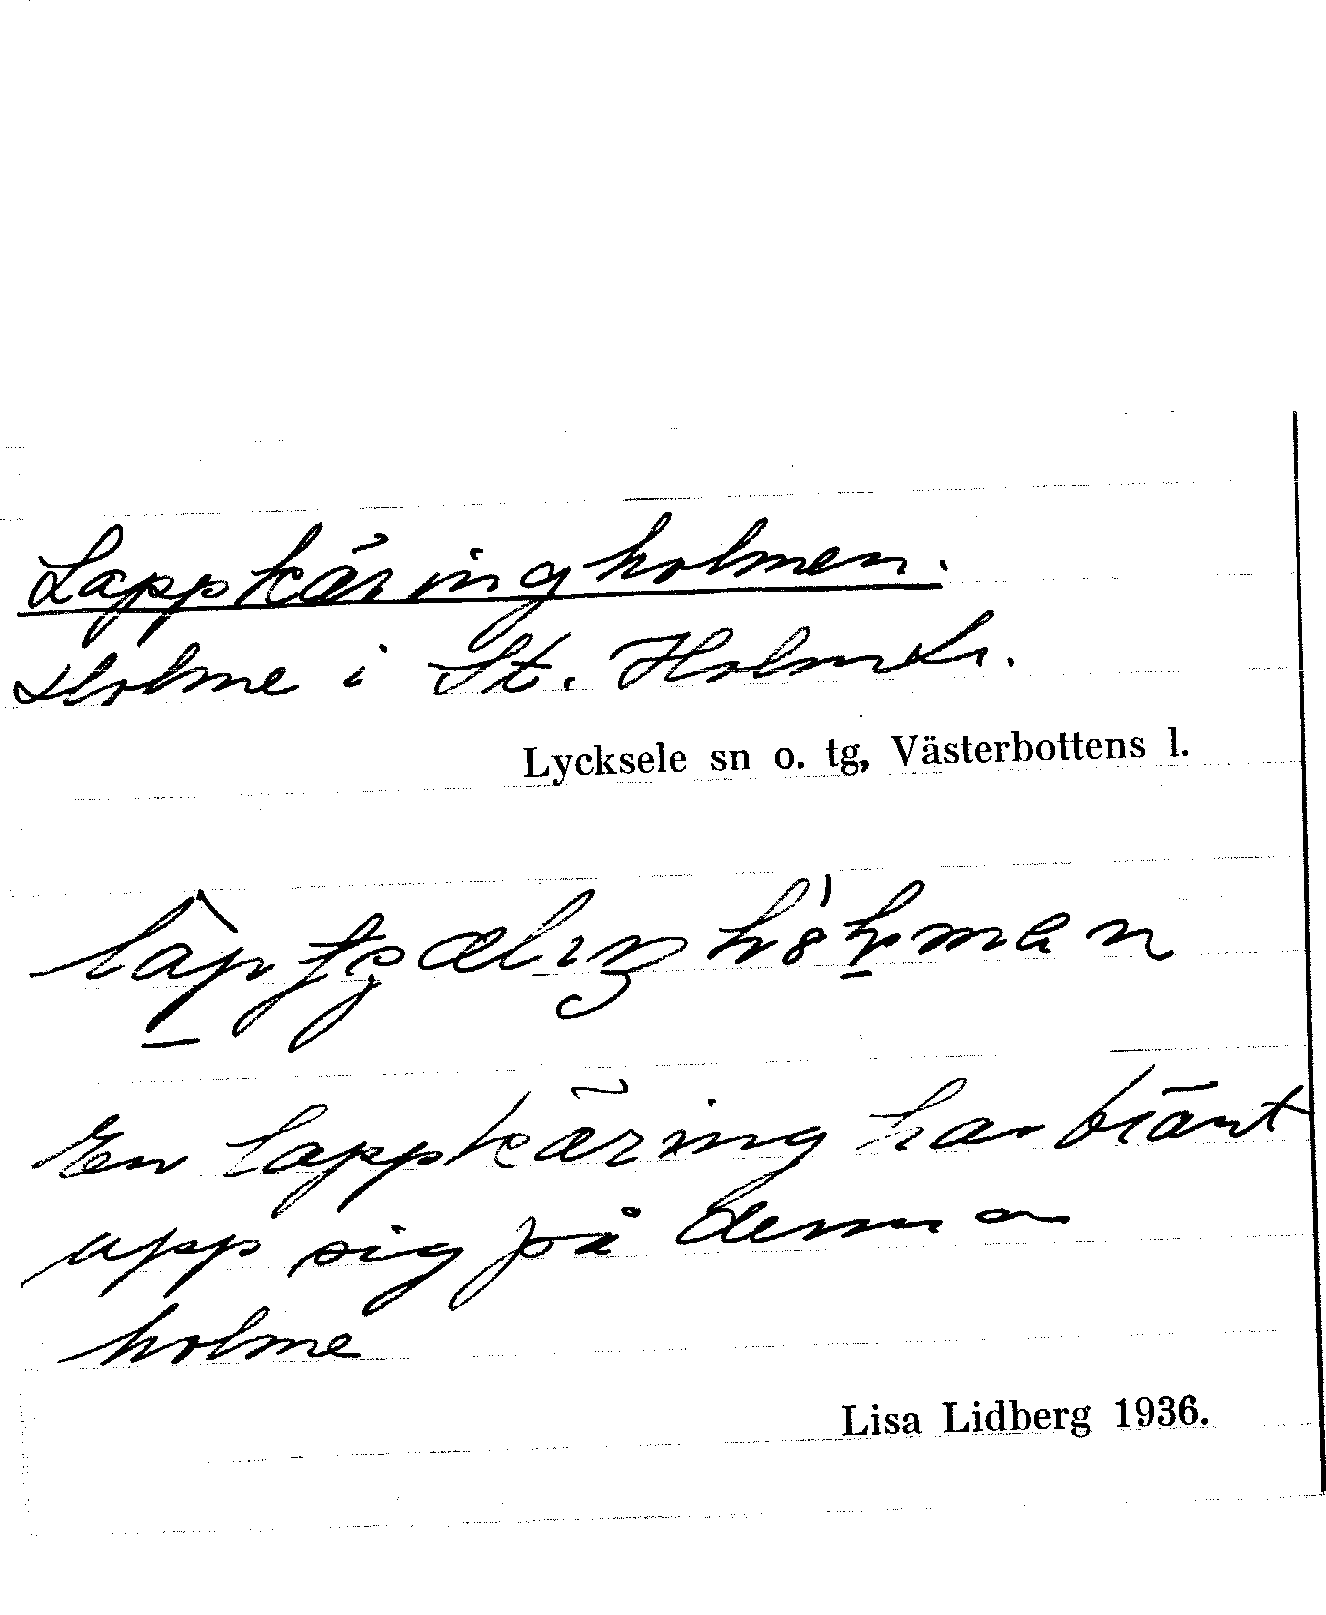 Lappkäringholmen.
Holme i St. Holmstr.
Lycksele sn o. tg, Västerbottens l.
En lappkäring har bränt
upp sig på denna
holme
Lisa Lidberg 1936.